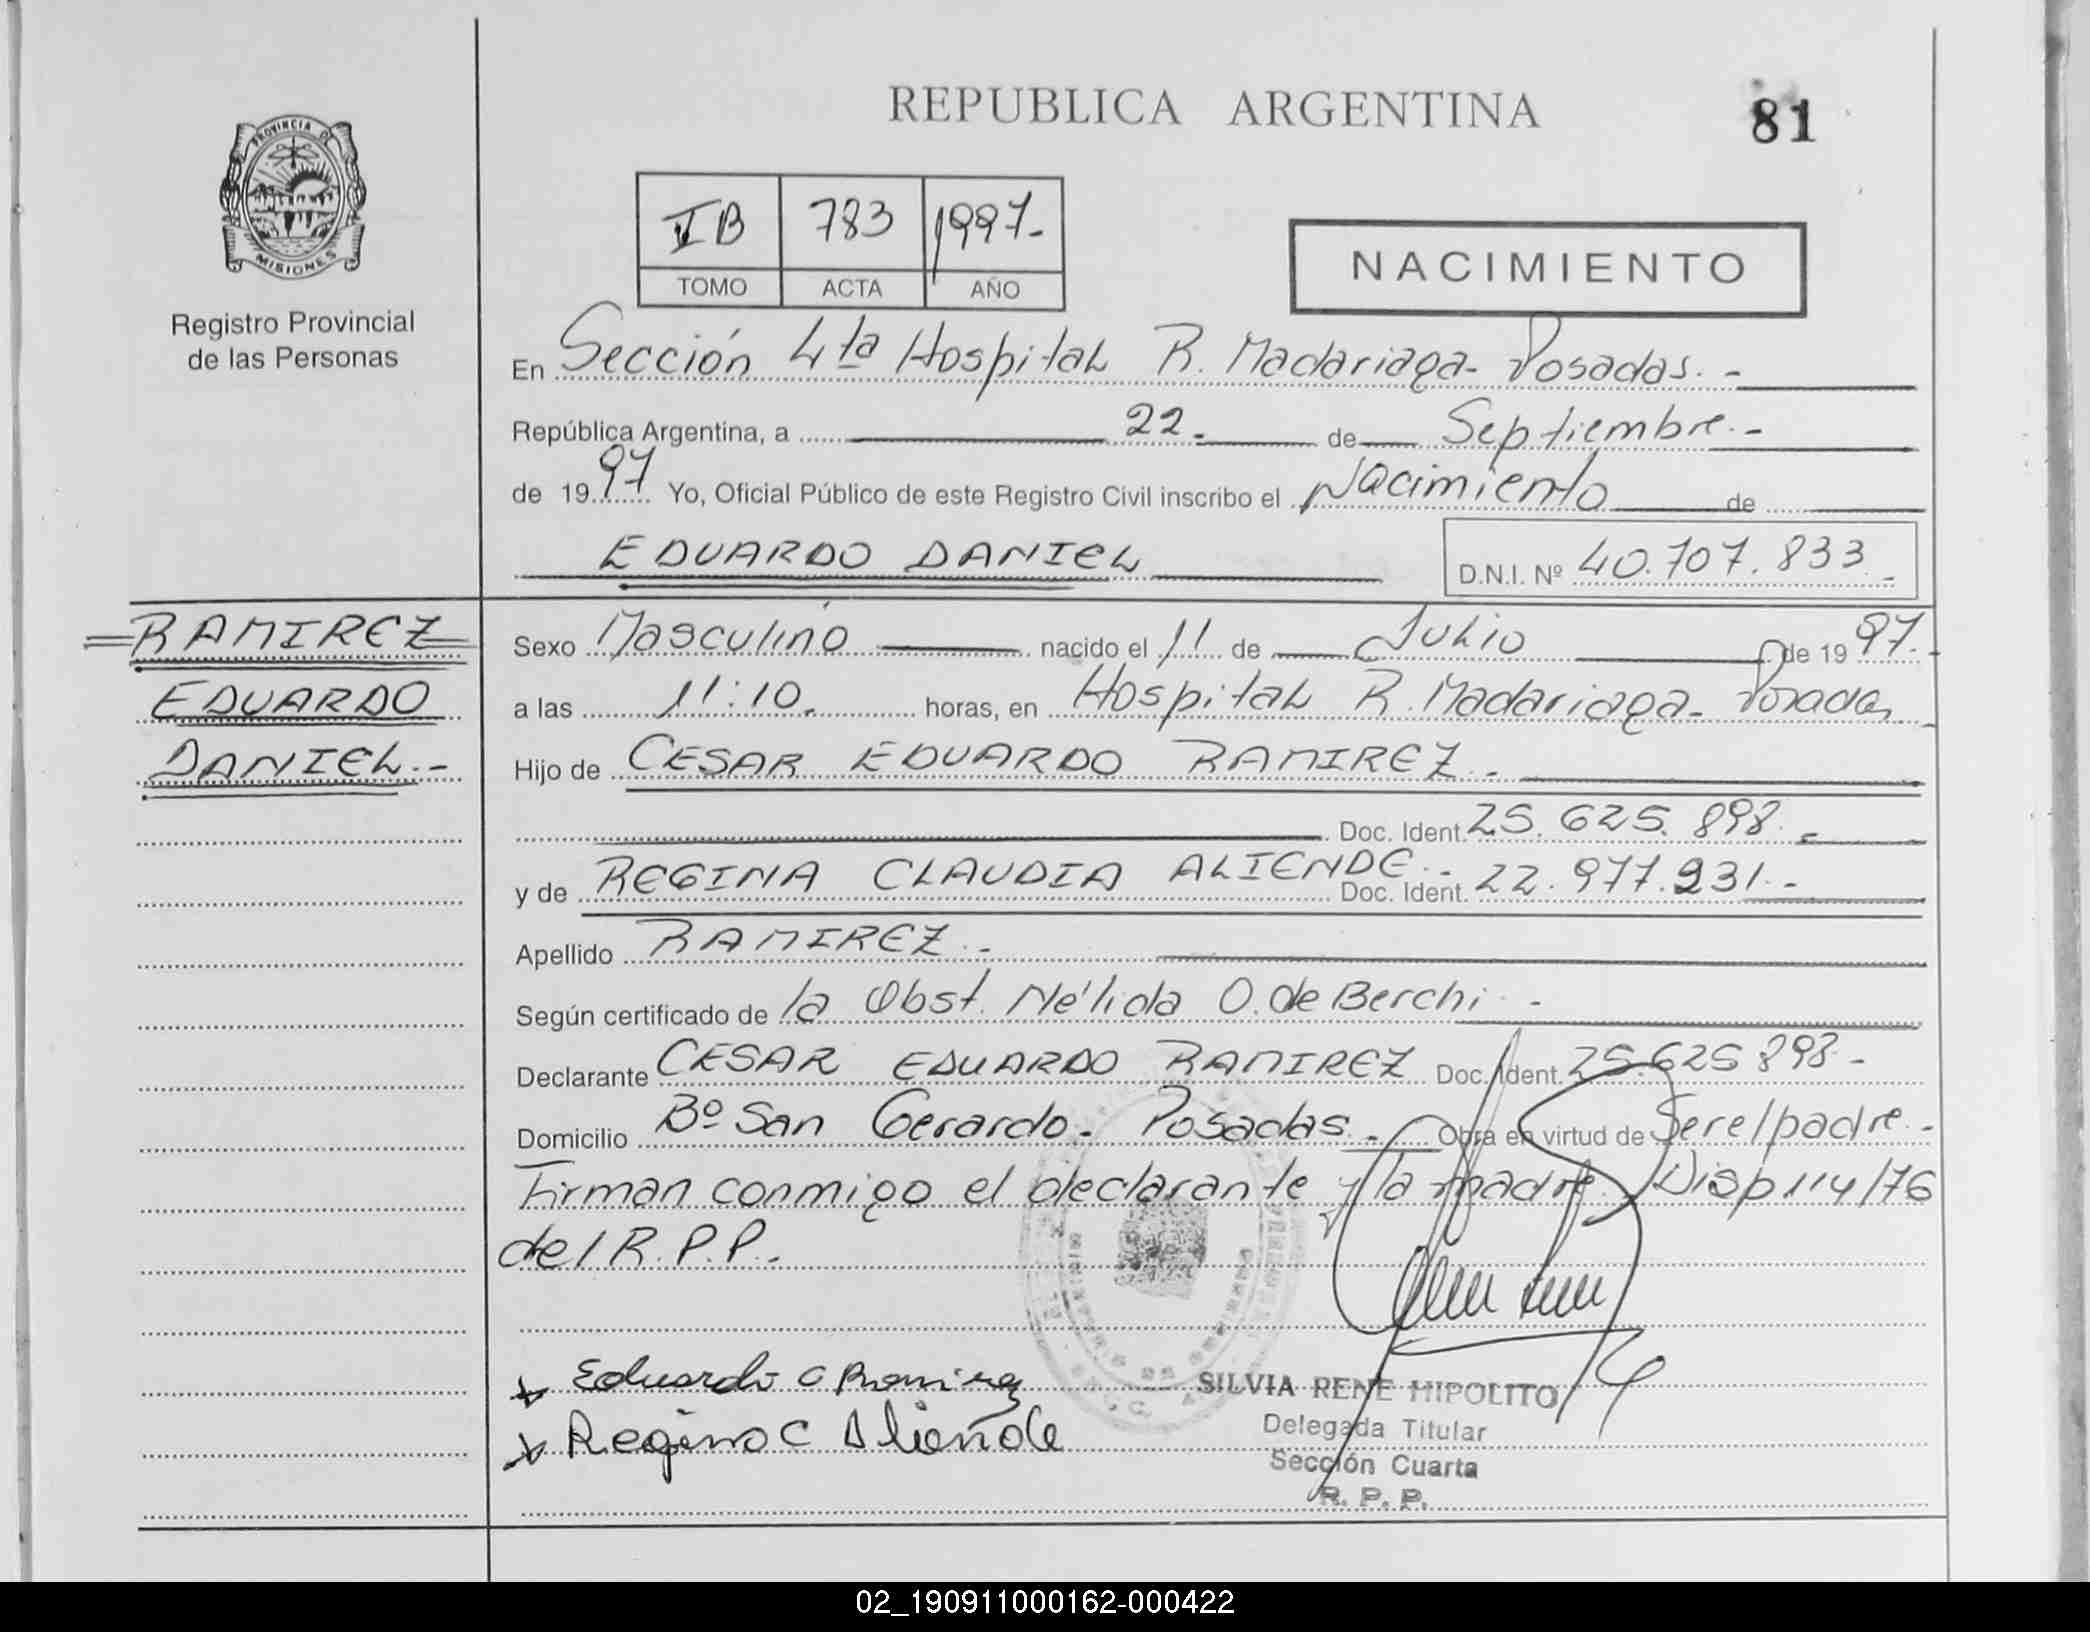 REPUBLICA ARGENTINA
81
PROVINCIA DE
MISIONES
Registro Provincial
de las Personas
IB 783 1997.-
TOMO ACTA AÑO
NACIMIENTO
En Sección 4ta Hospital R. Madariaga- Posadas.-
República Argentina, a 22.- de Septiembre.-
de 1997 Yo, Oficial Público de este Registro Civil inscribo el Nacimiento de
EDUARDO DANIEL
D.N.I. Nº 40.707.833.-
RAMIREZ
EDUARDO
DANIEL.-
Sexo Masculino nacido el 11 de Julio de 1997.-
a las 11:10. horas, en Hospital R. Madariaga- Posadas.-
Hijo de CESAR EDUARDO RAMIREZ.-
Doc. Ident. 25.625.898.-
y de REGINA CLAUDIA ALIENDE.- Doc. Ident. 22.977.931.-
Apellido RAMIREZ.-
Según certificado de la Obst. Nélida O. de Berchi.-
Declarante CESAR EDUARDO RAMIREZ Doc. Ident. 25.625.898.-
Domicilio Bº San Gerardo.- Posadas.- Obra en virtud de Ser el padre.-
Firman conmigo el declarante y la madre. Disp 114/76
del R.P.P.-
x Eduardo C Ramirez
x Regina C Aliende
SILVIA RENE HIPOLITO
Delegada Titular
Sección Cuarta
R. P. P.
02_190911000162-000422